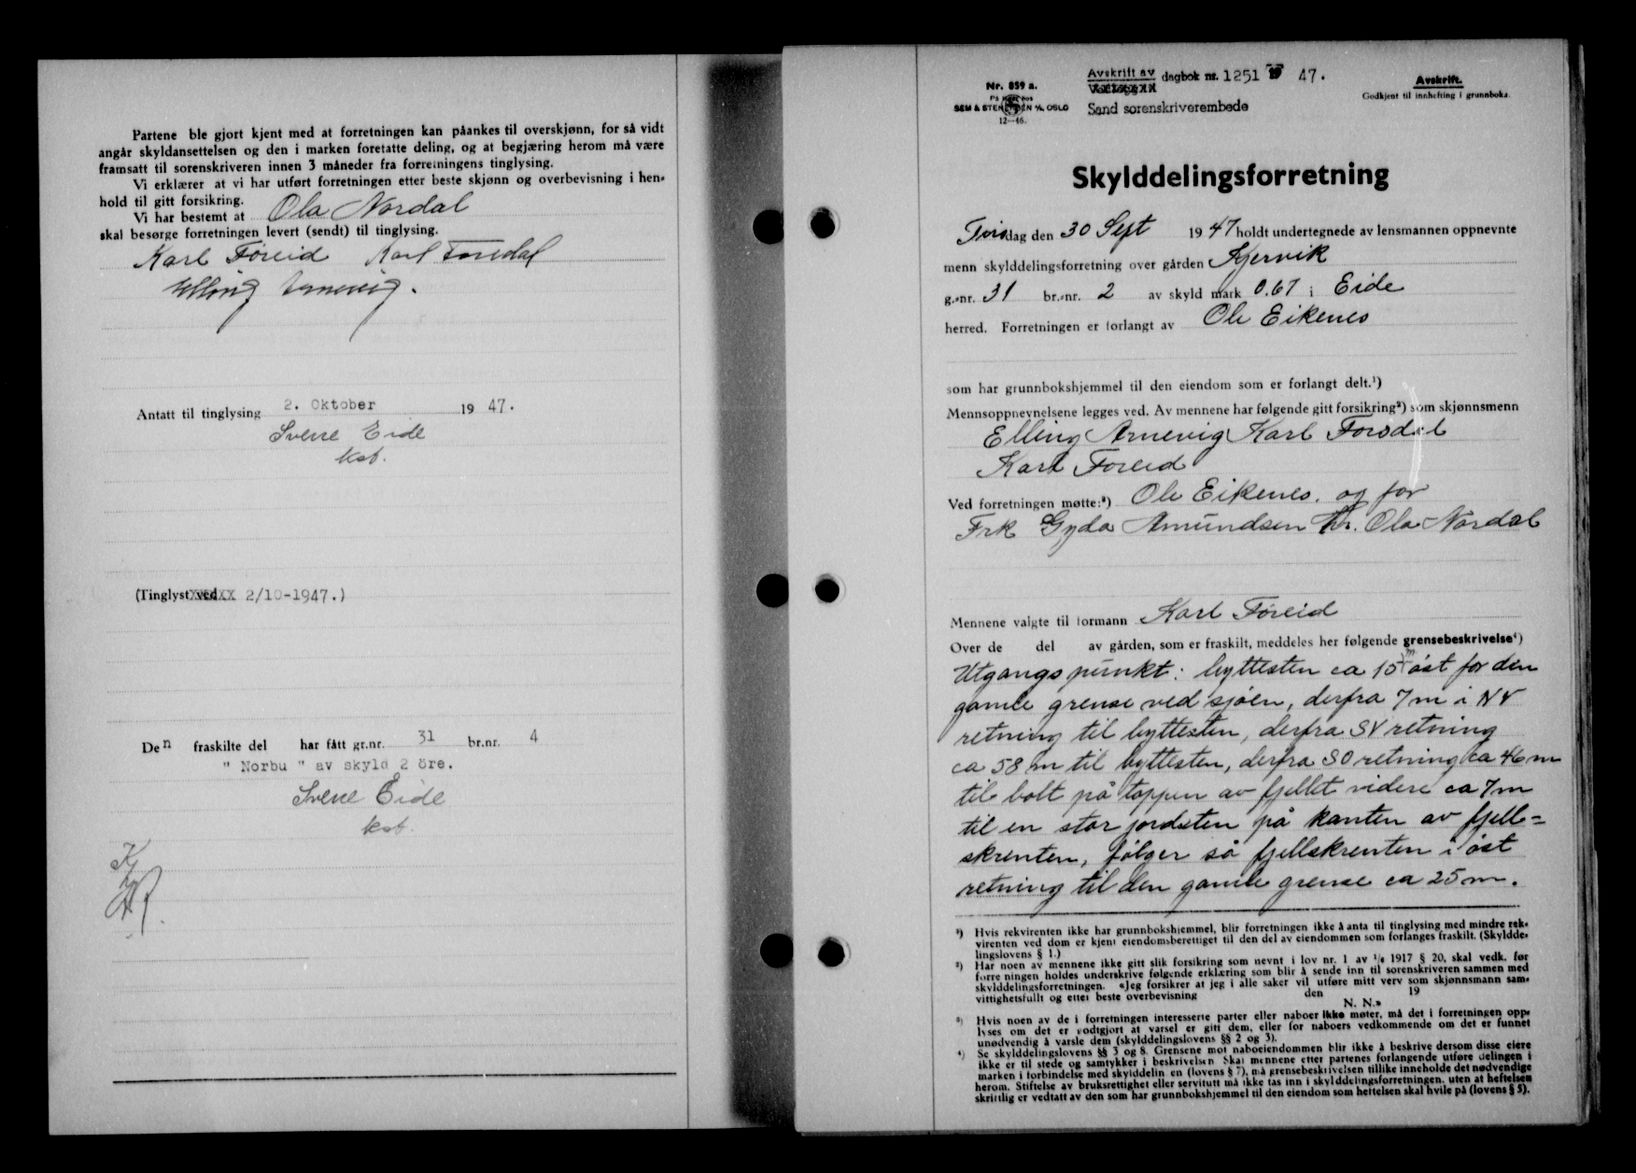 Partene ble gjort kjent med at forretningen kan påankes til overskjønn, for så vidt
angår skyldansettelsen og den i marken foretatte deling, og at begjæring herom må være
framsatt til sorenskriveren innen 3 måneder fra forretningens tinglysing.
Vi erklærer at vi har utført forretningen etter beste skjønn og overbevisning i hen-
hold til gitt forsikring.
Vi har bestemt at Ola Nordal
skal besørge forretningen levert (sendt) til tinglysing.
Karl Föreid Karl Forsdal
Elling Arnevig.
Antatt til tinglysing 2. Oktober 19 47.
Sverre Eide
kst.
(Tinglyst 2/10-1947.)
Den fraskilte del har fått gr.nr. 31 br.nr. 4
" Norbu " av skyld 2 öre.
Sverre Eide
kst.
Nr. 859 a.
SEM & STENERSEN A/S, OSLO
12—46.
Avskrift av dagbok nr. 1251 19 47.
Sand sorenskriverembede
Avskrift.
Godkjent til innhefting i grunnboka.
Skylddelingsforretning
Tirsdag den 30 Sept 19 47 holdt undertegnede av lensmannen oppnevnte
menn skylddelingsforretning over gården Kjervik
g.-nr. 31 br.-nr. 2 av skyld mark 0.67 i Eide
herred. Forretningen er forlangt av Ole Eikenes
som har grunnbokshjemmel til den eiendom som er forlangt delt.¹)
Mennsoppnevnelsene legges ved. Av mennene har følgende gitt forsikring²) som skjønnsmenn
Elling Arnevig Karl Forsdal
Karl Foreid
Ved forretningen møtte:³) Ole Eikenes. og for
Frk Gyda Amundsen hr. Ola Nordal
Mennene valgte til formann Karl Föreid
Over de del av gården, som er fraskilt, meddeles her følgende grensebeskrivelse⁴)
Utgangspunkt: byttesten ca 15 m öst for den
gamle grense ved sjöen, derfra 7 m i NV
retning til byttesten, derfra SV retning
ca 58 m til byttesten, derfra SO retning ca 46 m
til bolt på toppen av fjellet videre ca 7 m
til en stor jordsten på kanten av fjell=
skrenten, fölger så fjellskrenten i öst
retning til den gamle grense ca 25 m.
¹) Hvis rekvirenten ikke har grunnbokshjemmel, blir forretningen ikke å anta til tinglysing med mindre rek-
virenten ved dom er kjent eiendomsberettiget til den del av eiendommen som forlanges fraskilt. (Skyldde-
lingslovens § 1.)
²) Har noen av mennene ikke gitt slik forsikring som nevnt i lov nr. 1 av 1/6 1917 § 20, skal vedk. før
forretningen holdes underskrive følgende erklæring som blir å sende inn til sorenskriveren sammen med
skylddelingsforretningen. «Jeg forsikrer at jeg i alle saker vil utføre mitt verv som skjønnsmann sam-
vittighetsfullt og etter beste overbevisning den 19
N. N.»
³) Hvis noen av de i forretningen interesserte parter eller naboer ikke møter, må det i forretningen opp-
lyses om det er godtgjort at varsel er gitt dem, eller for naboers vedkommende om det er funnet
unødvendig å varsle dem (skylddelingslovens §§ 2 og 3).
⁴) Se skylddelingslovens §§ 3 og 8. Grensene mot naboeiendommen blir ikke å beskrive dersom disse eiere
ikke er til stede og samtykker i beskrivelsen Skal mennene etter partenes forlangende utføre delingen i
marken i forbindelse med skylddelingen (lovens § 7), må grensebeskrivelsen tillike inneholde det nødvendige
herom. Stiftelse av bruksrettighet eller servitutt må ikke tas inn i skylddelingsforretningen, uten at heftelsen
skriftlig er vedtatt av den som har grunnbokshjemmel til den eiendom som heftelsen skal hvile på (lovens § 5).